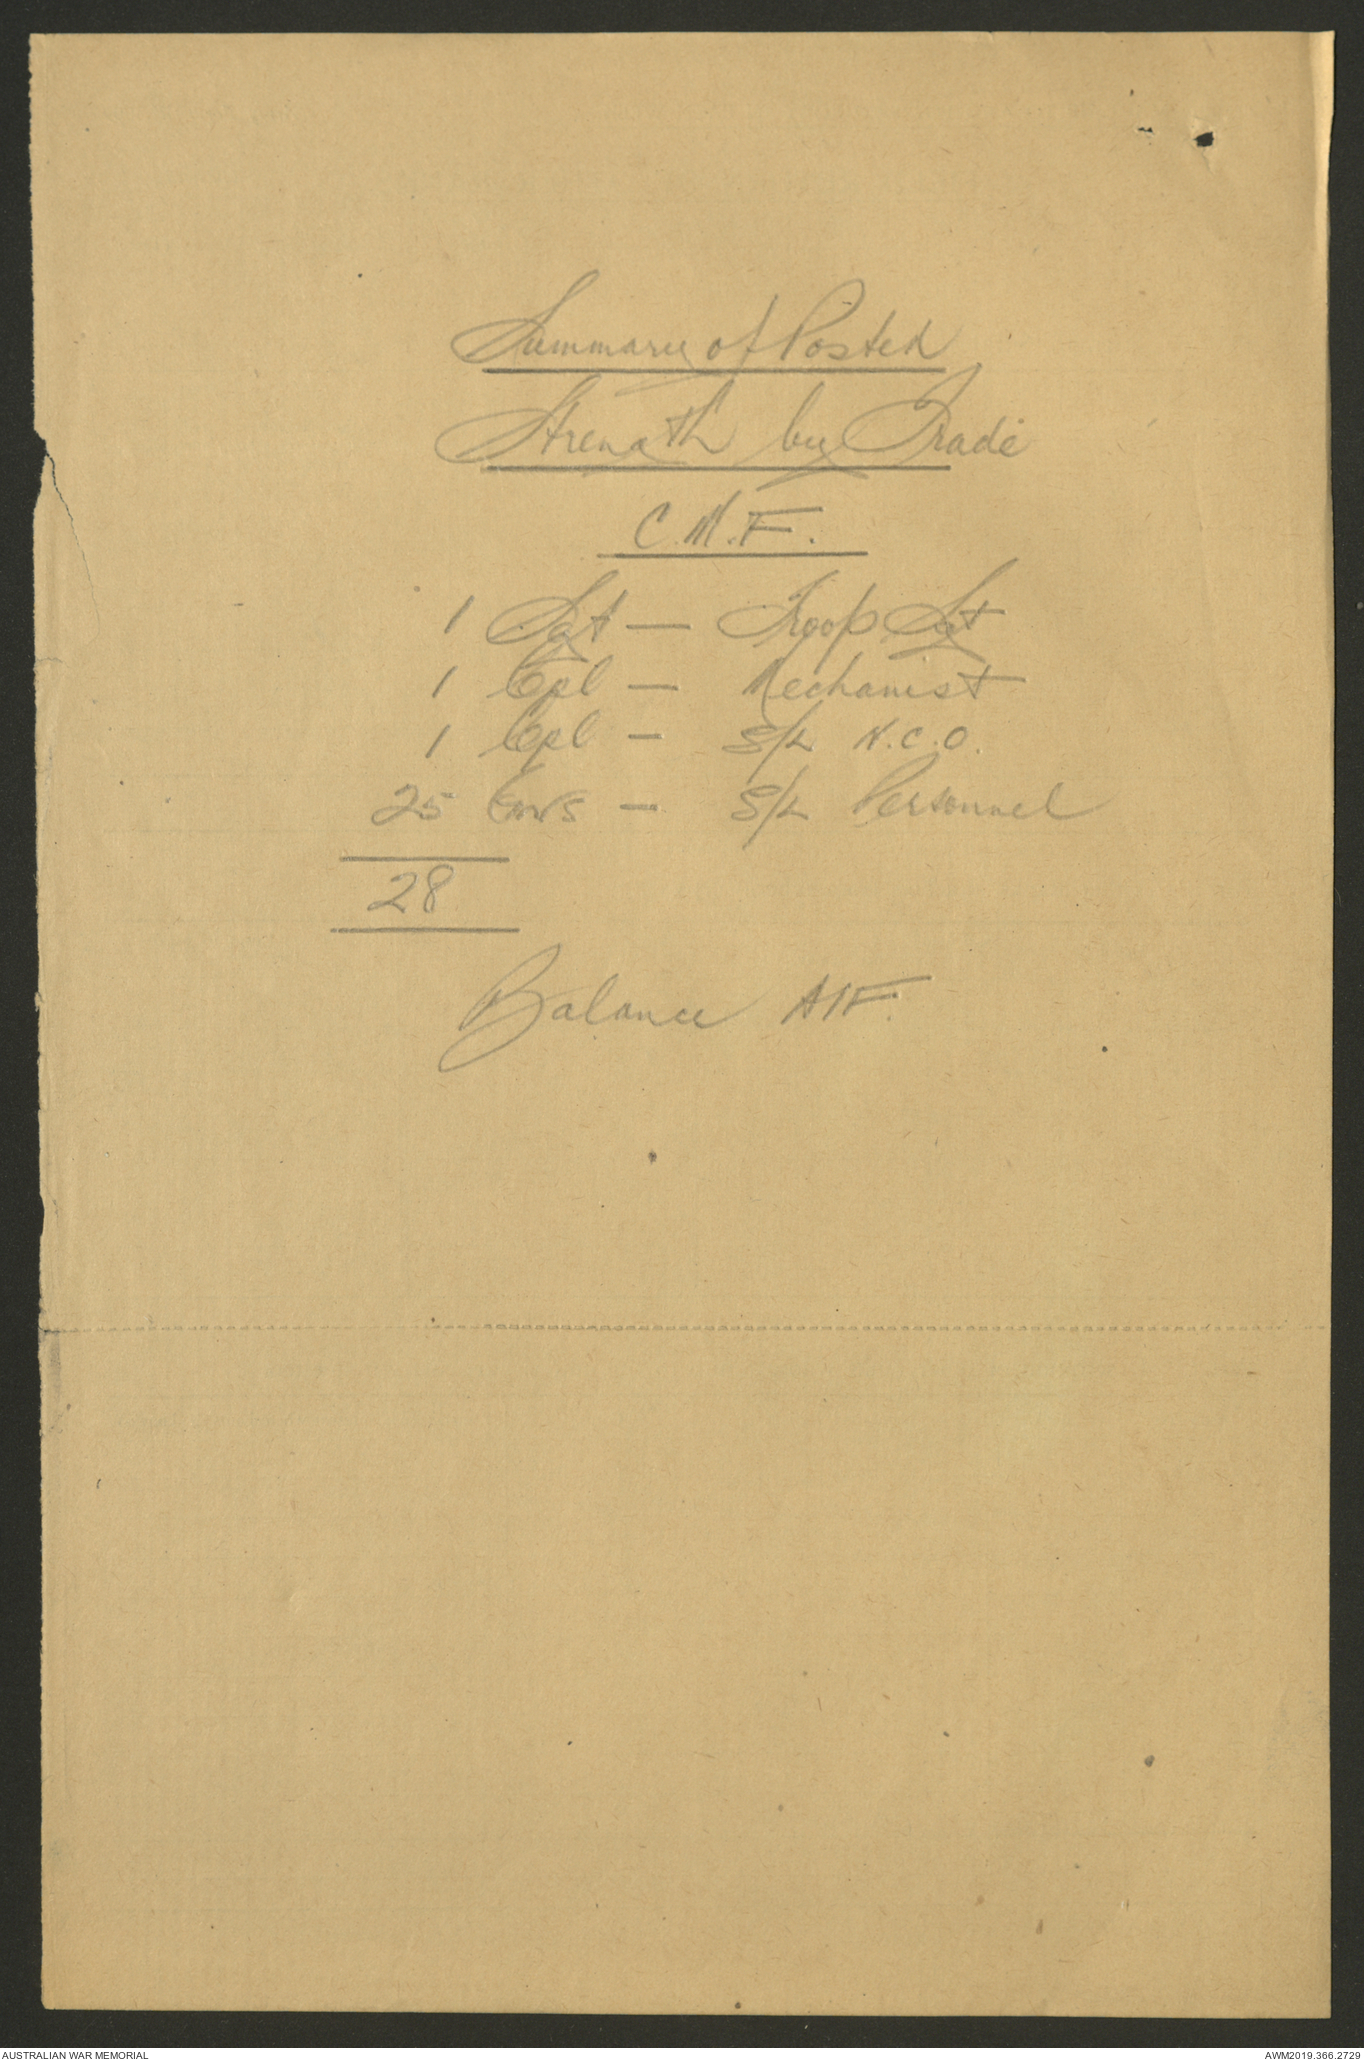 Summary of Posted
Strength by Trade
C.M.F.
1 Sgt — Troop Sgt
1 Cpl — Mechanist
1 Cpl — S/L N.C.O.
25 Gnrs — S/L Personnel
28
Balance AIF.
AUSTRALIAN WAR MEMORIAL AWM2019.366.2729